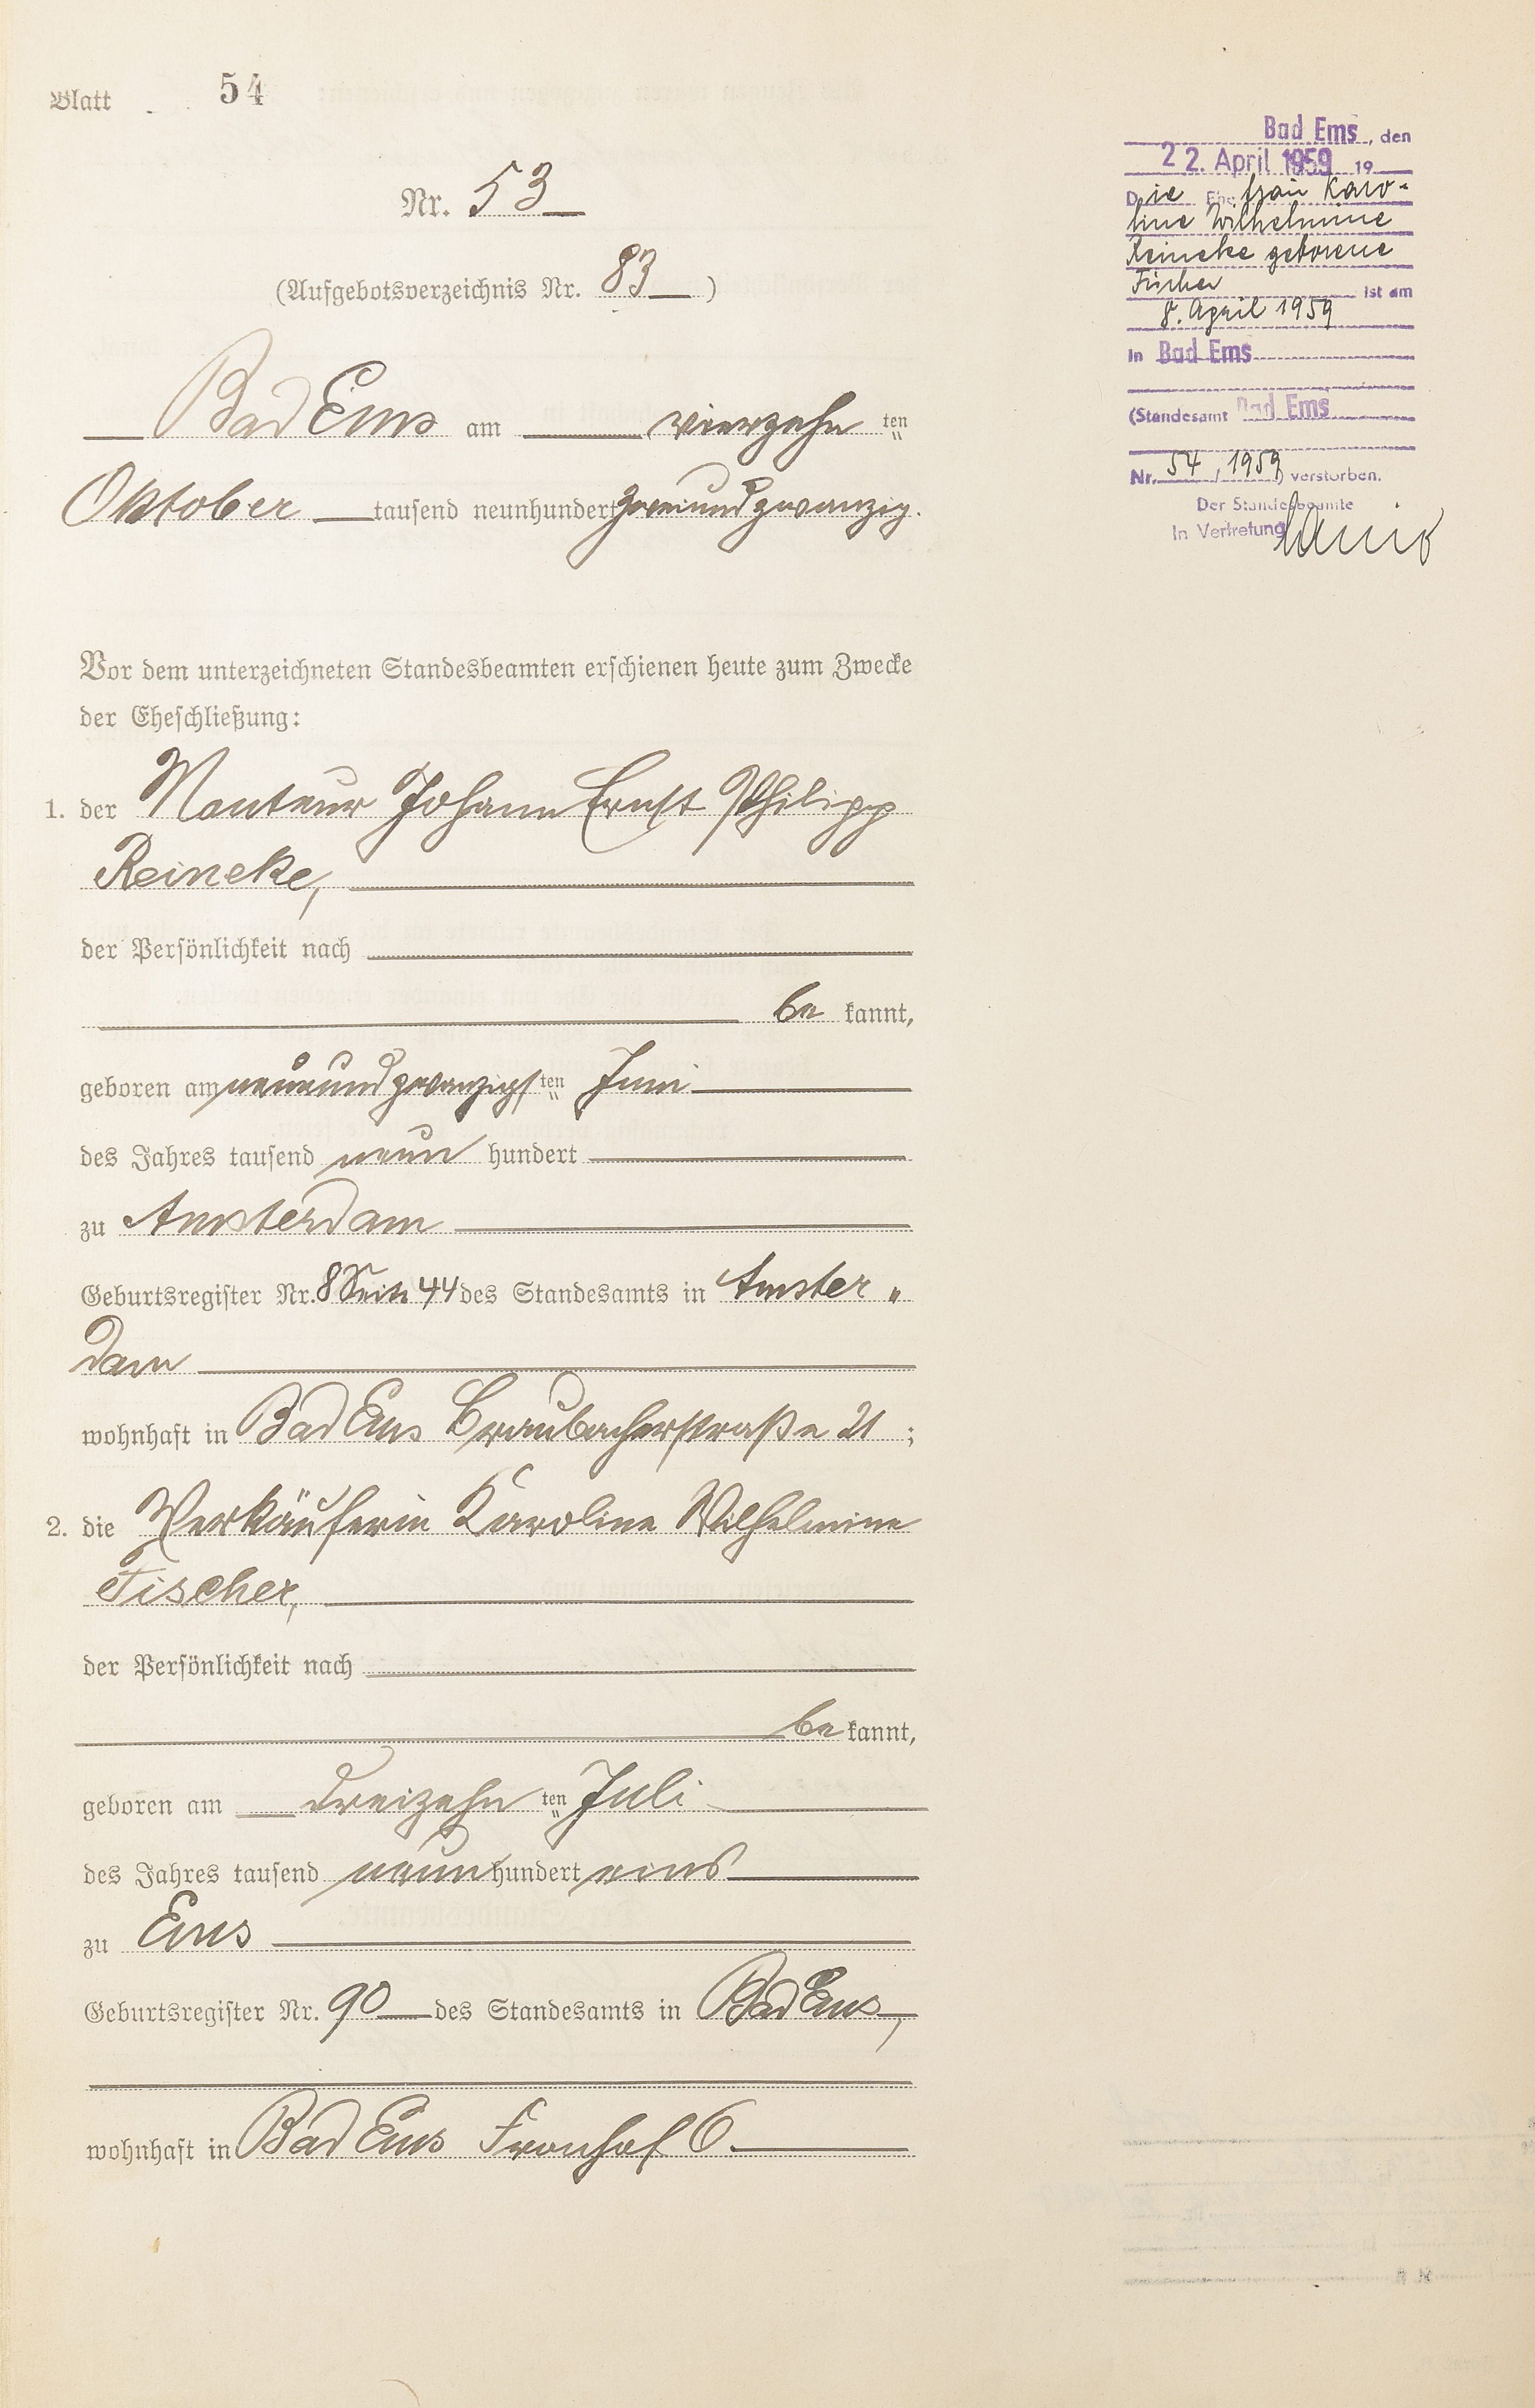 Blatt 54
Nr. 53
(Aufgebotsverzeichnis Nr. 83)
Bad Ems am vierzehn ten
Oktober tausend neunhundert zweiundzwanzig.
Vor dem unterzeichneten Standesbeamten erschienen heute zum Zwecke
der Eheschließung:
1. der Monteur Johann Ernst Philipp
Reineke,
der Persönlichkeit nach
be kannt,
geboren am neunundzwanzigsten Juni
des Jahres tausend neun hundert
zu Amsterdam
Geburtsregister Nr. 8 Seite 44 des Standesamts in Amster"
dam
wohnhaft in Bad Ems Braubacherstraße 21;
2. die Verkäuferin Karoline Wilhelmine
Fischer,
der Persönlichkeit nach
be kannt,
geboren am dreizehn ten Juli
des Jahres tausend neun hundert eins
zu Ems
Geburtsregister Nr. 90 des Standesamts in Bad Ems,
wohnhaft in Bad Ems Fronhof 6.
Bad Ems, den
22. April 1959 19
Die Ehefrau Karo-
line Wilhelmine
Reineke geborene
Fischer ist am
8. April 1959
in Bad Ems
(Standesamt Bad Ems
Nr. 54, 1959) verstorben.
Der Standesbeamte
In Vertretung